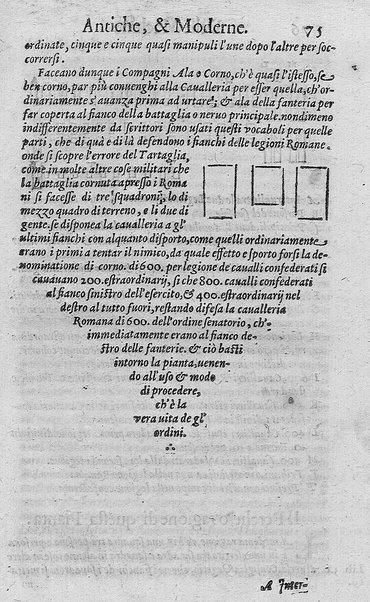 Antiche, & Moderne. 75
ordinate, cinque e cinque quasi manipuli l'une dopo l'altre per soc-
correrſi.
Faceano dunque i Compagni Ala o Corno, ch'è quaſi l'iſteſſo, ſe
ben corno, par più conuenghi alla Caualleria per eſſer quella, ch'or-
dinariamente s'auanza prima ad urtare; & ala della fanteria per
far coperta al fianco della battaglia o neruo principale. nondimeno
indifferentemente da ſcrittori ſono uſati queſti vocaboli per quelle
parti, che di quà e di là defendono i fianchi delle legioni Romane.
onde ſi ſcopre l'errore del Tartaglia,
come in molte altre coſe militari che
la battaglia cornuta apreſſo i Roma
ni ſi faceſſe di tre ſquadroni, lo di
mezzo quadro di terreno, e li due di
gente. ſe diſponea la caualleria a gl'
ultimi fianchi con alquanto diſporto, come quelli ordinariamente
erano i primi a tentar il nimico, da quale effetto e sporto forſi la de-
nominatione di corno. di 600. per legione de caualli confederati ſi
cauauano 200. eſtraordinarij, ſi che 800. caualli confederati
al fianco ſiniſtro dell'eſercito, & 400. eſtraordinarij nel
deſtro al tutto fuori, reſtando difeſa la caualleria
Romana di 600. dell'ordine ſenatorio, ch'
immediatamente erano al fianco de-
ſtro delle fanterie. & ciò baſti
intorno la pianta, uenen-
do all'uſo & modo
di procedere,
ch'è la
vera uita de gl'
ordini.